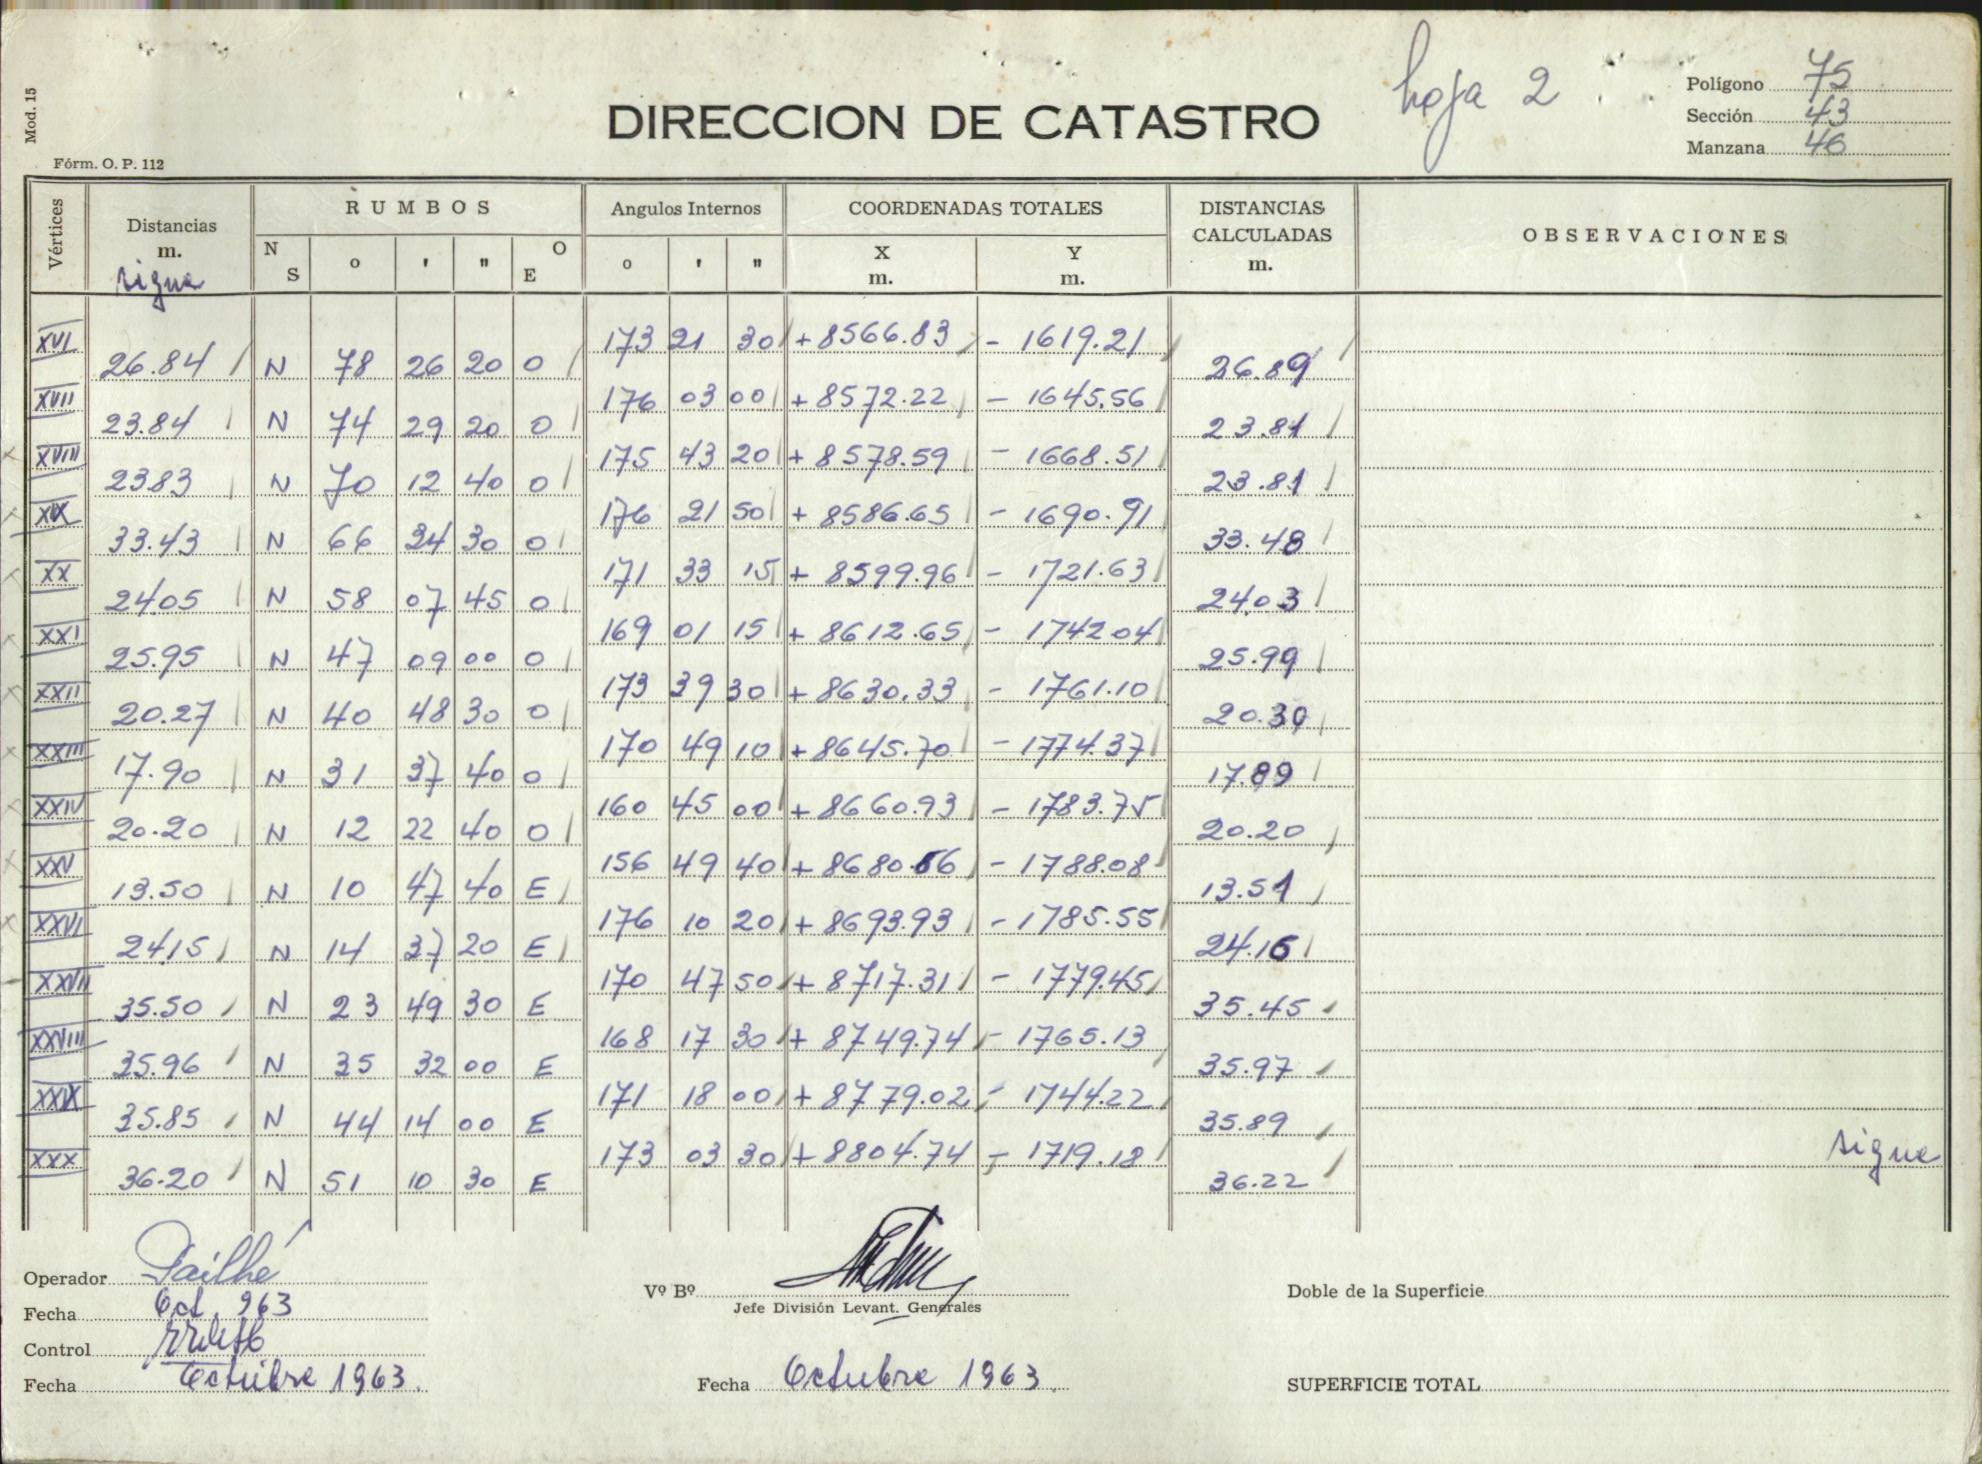 Mod. 15
hoja 2
Polígono 75
DIRECCION DE CATASTRO
Sección 43
Manzana 46
Fórm. O. P. 112
Vértices Distancias m. RUMBOS N S o ' " O E Angulos Internos o ' " COORDENADAS TOTALES X m. Y m. DISTANCIAS CALCULADAS m. OBSERVACIONES
sigue
XVI 173 21 30 +8566.83 - 1619.21
26.84 N 78 26 20 O 26.89
XVII 176 03 00 +8572.22 - 1645.56
23.84 N 74 29 20 O 23.81
XVIII 175 43 20 +8578.59 - 1668.51
23.83 N 70 12 40 O 23.81
XIX 176 21 50 +8586.65 - 1690.91
33.43 N 66 34 30 O 33.48
XX 171 33 15 +8599.96 - 1721.63
24.05 N 58 07 45 O 24.03
XXI 169 01 15 +8612.65 - 1742.04
25.95 N 47 09 00 O 25.99
XXII 173 39 30 +8630.33 - 1761.10
20.27 N 40 48 30 O 20.30
XXIII 170 49 10 +8645.70 - 1774.37
17.90 N 31 37 40 O 17.89
XXIV 160 45 00 +8660.93 - 1783.75
20.20 N 12 22 40 O 20.20
XXV 156 49 40 +8680.66 - 1788.08
13.50 N 10 47 40 E 13.51
XXVI 176 10 20 +8693.93 - 1785.55
24.15 N 14 37 20 E 24.16
XXVII 170 47 50 +8717.31 - 1779.45
35.50 N 23 49 30 E 35.45
XXVIII 168 17 30 +8749.74 - 1765.13
35.96 N 35 32 00 E 35.97
XXIX 171 18 00 +8779.02 - 1744.22
35.85 N 44 14 00 E 35.89
XXX 173 03 30 +8804.74 - 1719.18 sigue
36.20 N 51 10 30 E 36.22
Operador Pailhé
Vº Bº
Jefe División Levant. Generales
Doble de la Superficie
Fecha Oct. 963
Control
Fecha Octubre 1963.
Fecha Octubre 1963.
SUPERFICIE TOTAL